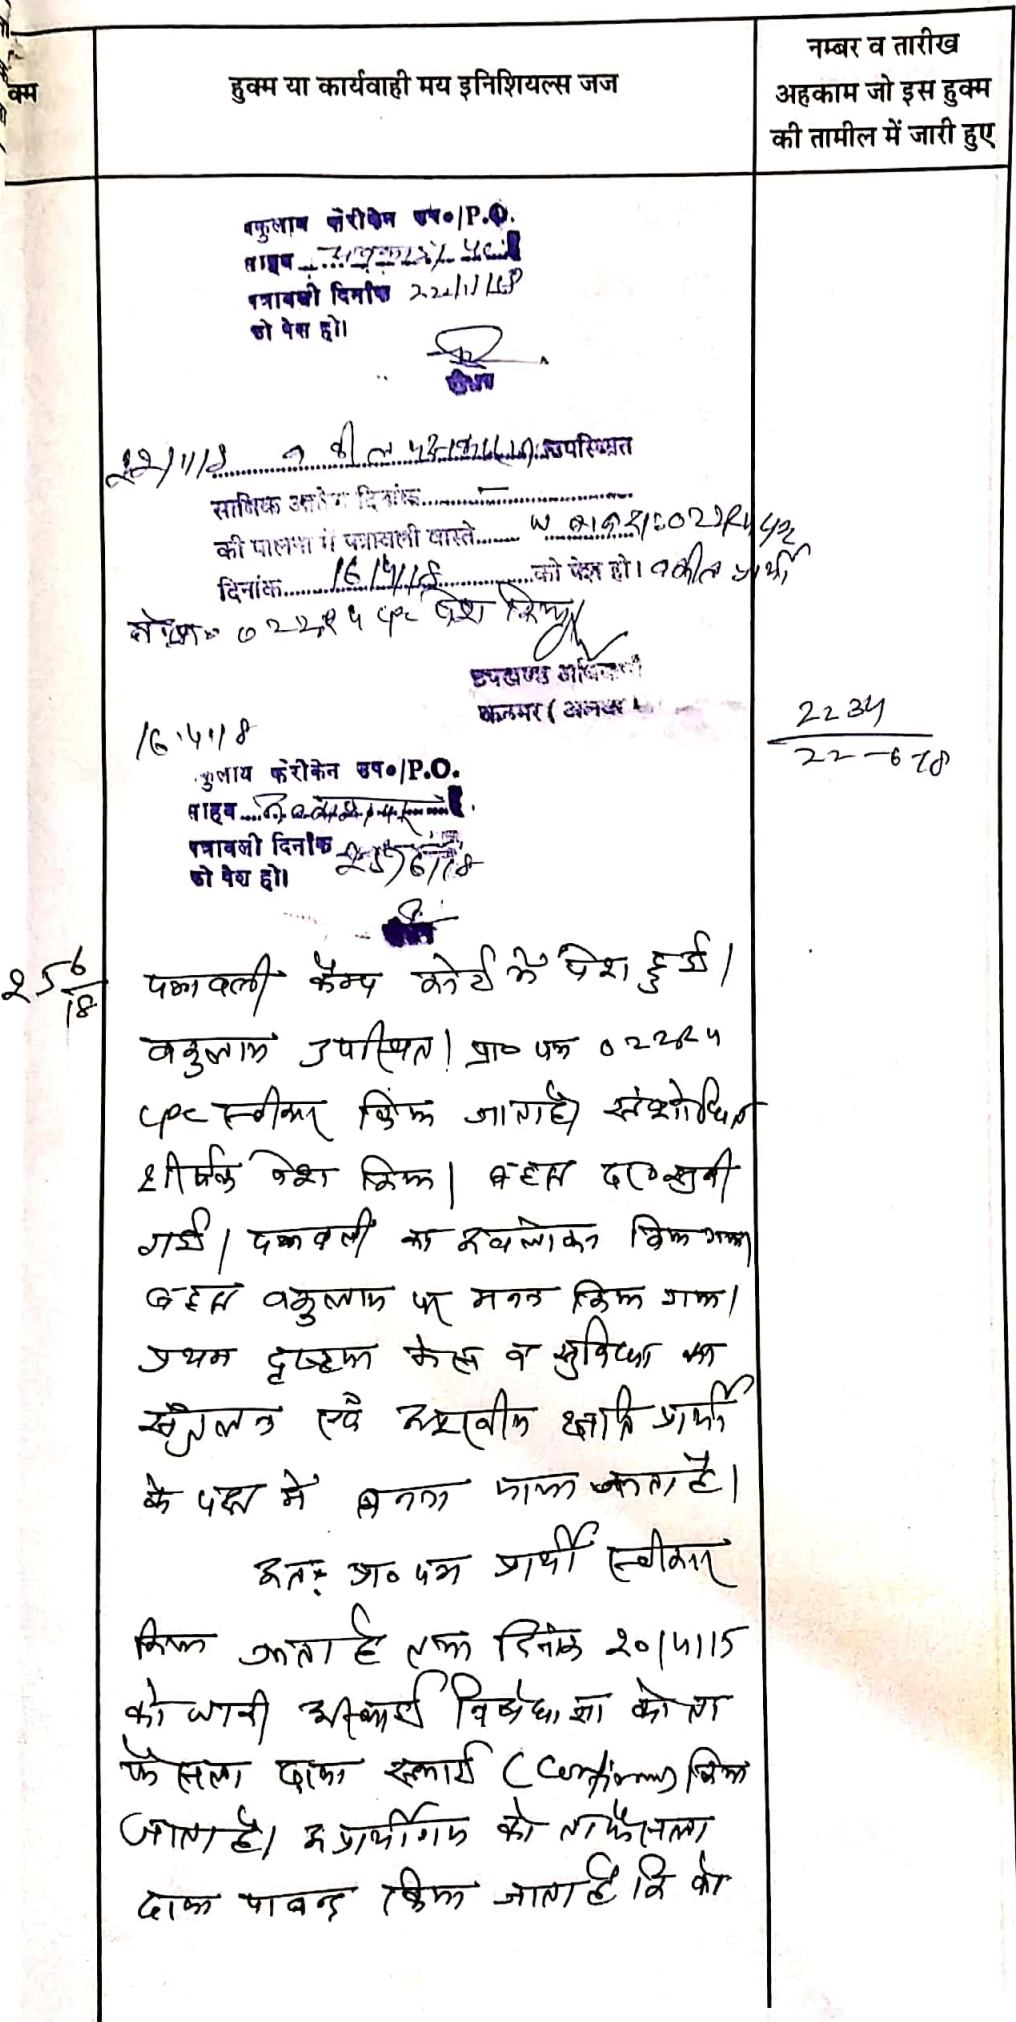 क्म
हुक्म या कार्यवाही मय इनिशियल्स जज
नम्बर व तारीख
अहकाम जो इस हुक्म
की तामील में जारी हुए
वकुलाय फरीकेन उप०/P.O.
साहब
पत्रावली दिनांक 22/1/18
को पेश हो।
22/1/18 वकील उपस्थित
साबिक आदेश दिनांक
की पालना में पत्रावली वास्ते
दिनांक 16/4/18 को पेश हो। वकील प्रार्थी
022R4 cpc पेश किया
उपखण्ड अधिकारी
कठूमर (अलवर)
16.4.18
2234
22-6-18
वकुलाय फरीकेन उप०/P.O.
साहब
पत्रावली दिनांक 25/6/18
को पेश हो।
25 6/18
पत्रावली कैम्प कोर्ट में पेश हुई।
वकुलाय उपस्थित। प्रा० पत्र 022R4
cpc स्वीकार किया जाता है। संशोधित
शीर्षक पेश किया। बहस द० सुनी
गई। पत्रावली का अवलोकन किया गया।
बहस वकुलाय पर मनन किया गया।
प्रथम दृष्टया केस व सुविधा का
संतुलन एवं अपूरणीय क्षति प्रार्थी
के पक्ष में बनना पाया जाता है।
अतः प्रा० पत्र प्रार्थी स्वीकार
किया जाता है तथा दिनांक 20/4/15
को जारी अस्थाई निषेधाज्ञा को ता
फैसला दावा स्थाई (Confirm) किया
जाता है। अप्रार्थीगण को ता फैसला
दावा पाबन्द किया जाता है कि वो